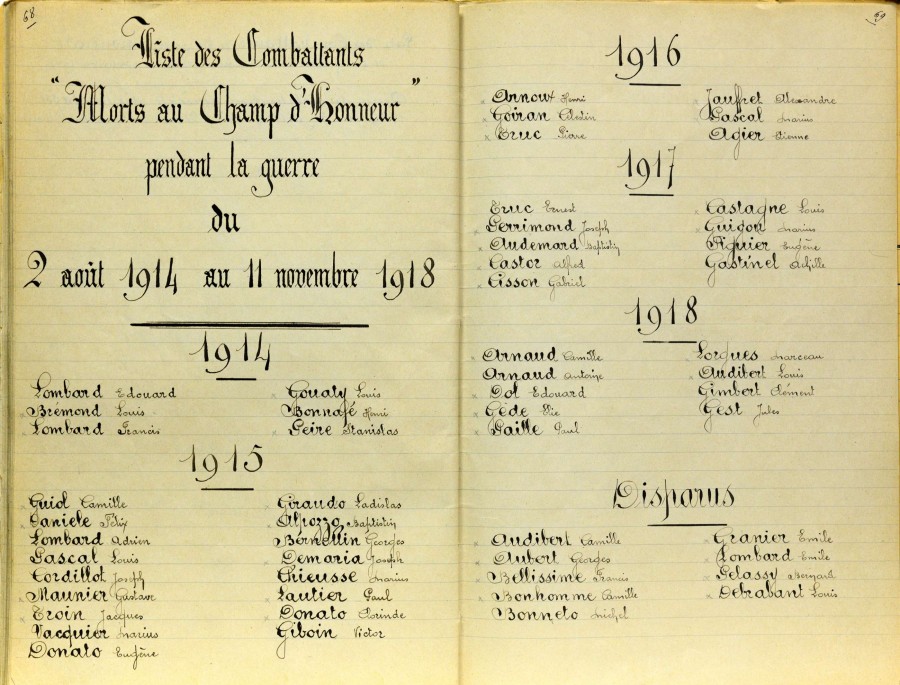 68
Liste des Combattants
"Morts au Champ d'Honneur"
pendant la guerre
du
2 août 1914 au 11 novembre 1918
1914
Lombard Edouard
Brémond Louis
Lombard Francis
Goualy Louis
Bonnafé Henri
Peire Stanislas
1915
Guiol Camille
Daniele Félix
Lombard Adrien
Pascal Louis
Cordillot Joseph
Maunier Gustave
Troin Jacques
Vacquier Marius
Donato Eugène
Giraudo Ladislas
Alpozzo Baptistin
Bernellin Georges
Demaria Joseph
Thieusse Marius
Lautier Paul
Donato Clorinde
Giboin Victor
69
1916
Arnoux Henri
Goiran
Truc Pierre
Jauffret Alexandre
Pascal Marius
Agier Etienne
1917
Truc Ernest
Perrimond Joseph
Audemard Baptistin
Castor Alfred
Cisson Gabriel
Castagne Louis
Guigou Marius
Piquier Eugène
Gastinel Achille
1918
Arnaud Camille
Arnaud Antoine
Dol Edouard
Gède Elie
Paille Paul
Lorgues Marceau
Audibert Louis
Gimbert Clément
Gest Jules
Disparus
Audibert Camille
Aubert Georges
Bellissime Francis
Bonhomme Camille
Bonneto Michel
Granier Emile
Lombard Emile
Pelassy Bernard
Debrabant Louis